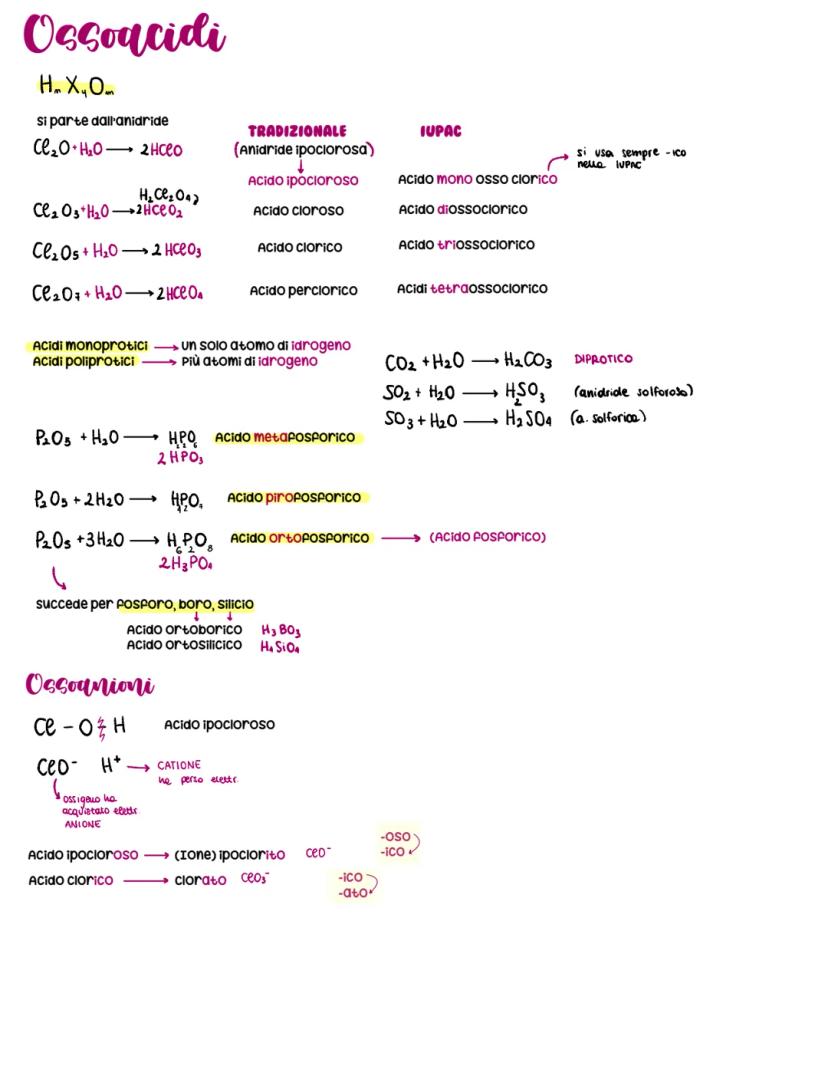 Ossoacidi
HₙXᵧOₘ
si parte dall'anidride
TRADIZIONALE IUPAC
Cl₂O + H₂O → 2HClO (Anidride ipoclorosa)
↓
si usa sempre -ico
nella IUPAC
Acido ipocloroso Acido mono osso clorico
H₂Cl₂O₄
Cl₂O₃ + H₂O → 2HClO₂ Acido cloroso Acido diossoclorico
Cl₂O₅ + H₂O → 2HClO₃ Acido clorico Acido triossoclorico
Cl₂O₇ + H₂O → 2HClO₄ Acido perclorico Acidi tetraossoclorico
Acidi monoprotici → un solo atomo di idrogeno
Acidi poliprotici → più atomi di idrogeno
CO₂ + H₂O → H₂CO₃ DIPROTICO
SO₂ + H₂O → H₂SO₃ (anidride solforosa)
SO₃ + H₂O → H₂SO₄ (a. solforica)
P₂O₅ + H₂O → H₂P₂O₆ Acido metafosforico
2HPO₃
P₂O₅ + 2H₂O → H₄P₂O₇ Acido pirofosforico
P₂O₅ + 3H₂O → H₆P₂O₈ Acido ortofosforico → (Acido fosforico)
2H₃PO₄
succede per fosforo, boro, silicio
Acido ortoborico H₃BO₃
Acido ortosilicico H₄SiO₄
Ossoanioni
Cl - O H Acido ipocloroso
ClO⁻ H⁺ → CATIONE
ha perso elettr.
ossigeno ha
acquistato elettr.
ANIONE
Acido ipocloroso → (Ione) ipoclorito ClO⁻
-oso
-ico
Acido clorico → clorato ClO₃⁻
-ico
-ato